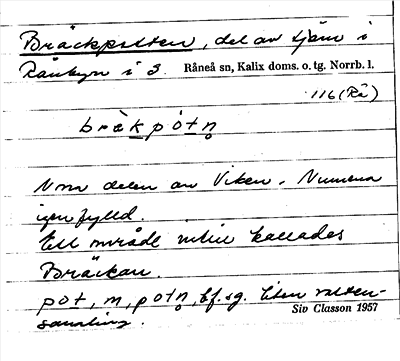 Bräckpotten, del av tjärn i
Rånbyn i S. Råneå sn, Kalix doms. o. tg. Norrb. l.
116 (Rå)
bräkpòtn̥
N om delen av Viken. Numera
igenfylld.
Ett område intill kallades
Bräckan.
pot, m, potn̥, bf. sg. liten vatten-
samling.
Siv Classon 1957